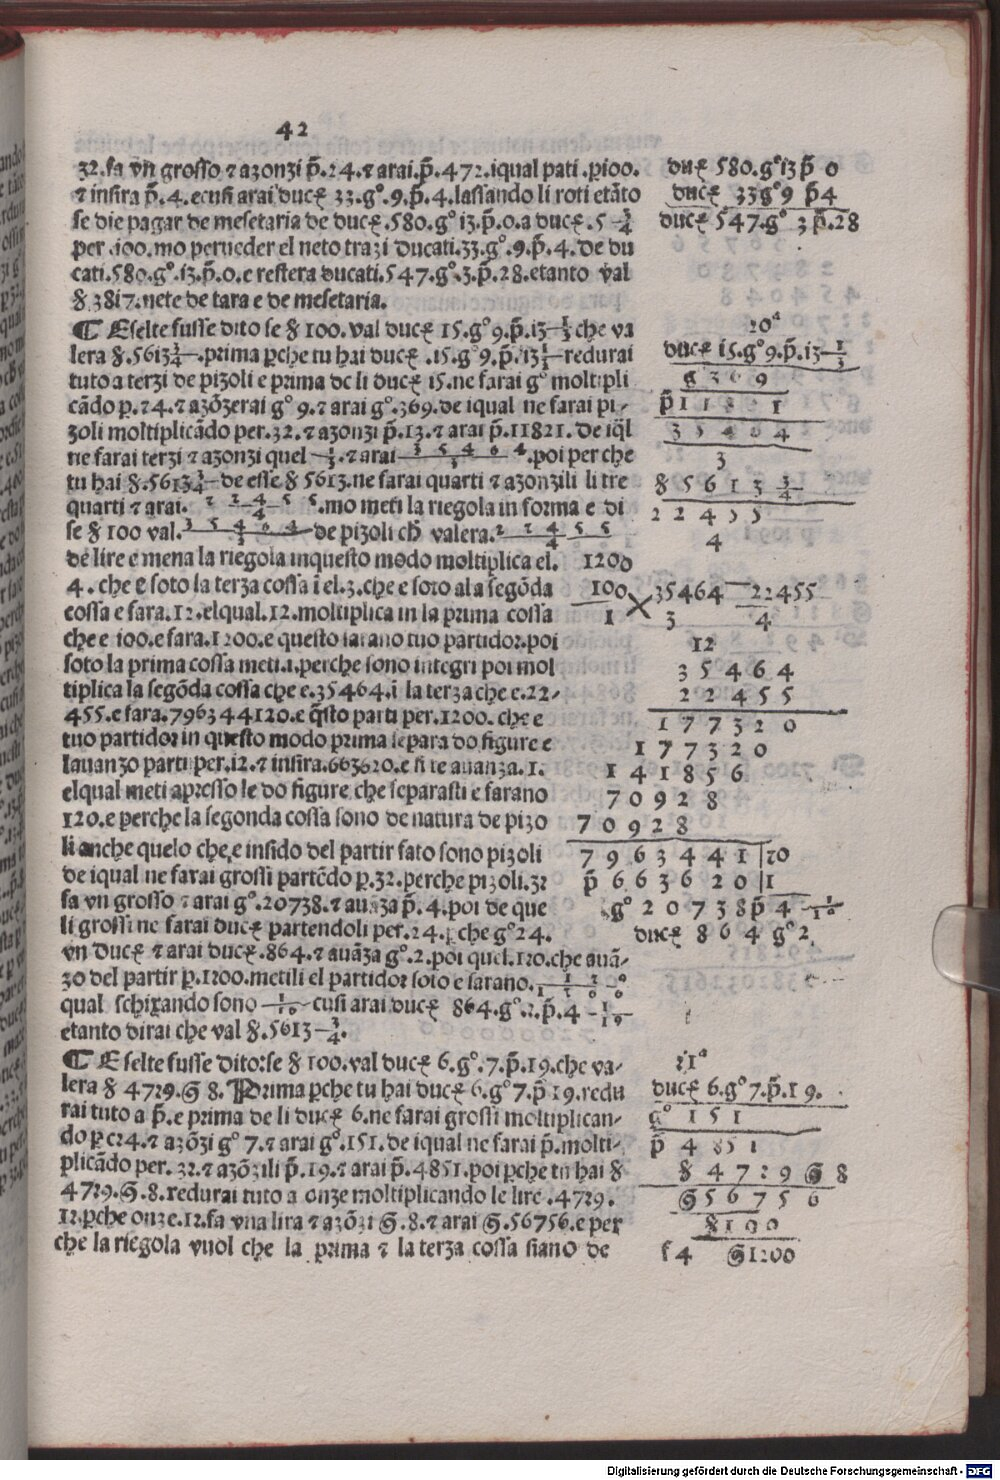 42
32.fa vn grosso ⁊ azonzi p̃.24.⁊ arai.p̃.472.iqual pati .ꝑ100.
⁊ insira p̃.4.ecusi arai ducꝫ 33.gº.9.p̃.4.lassando li roti etãto
se die pagar de mesetaria de ducꝫ.580.gº 13.p̃.0.a ducꝫ.5 3/4
per .100.mo perueder el neto trazi ducati.33.gº.9.p̃.4.de du
cati.580.gº.13.p̃.0.e restera ducati.547.gº.3.p̃.28.etanto val
ꝸ.3817.nete de tara e de mesetaria.
duꝫ 580.gº13p̃ 0
ducꝫ 33gº9 p̃4
ducꝫ 547.gº 3p̃.28
¶ E selte fusse dito se ꝸ 100.val ducꝫ 15.gº9.p̃.13 1/3 che va
lera ꝸ.5613 3/4.prima ꝑche tu hai ducꝫ .15.gº9.p̃.13 1/3 redurai
tuto a terzi de pizoli e prima de li ducꝫ 15.ne farai gº moltipli
cãdo p.24.⁊ azõzerai gº 9.⁊ arai gº.369.de iqual ne farai pi-
zoli moltiplicãdo per.32.⁊ azonzi p̃.13.⁊ arai p̃.11821.De iq̃l
ne farai terzi ⁊ azonzi quel 1/3.⁊ arai 35464/3.poi per che
tu hai ꝸ.5613 3/4 de esse ꝸ 5613.ne farai quarti ⁊ azonzili li tre
quarti ⁊ arai. 22455/4.mo meti la riegola in forma e di
se ꝸ 100 val.35464/3 de pizoli ch̃ valera.22455/4
de lire e mena la riegola inquesto modo moltiplica el.
4.che e soto la terza cossa ĩ el.3.che e soto ala segõda
cossa e fara.12.elqual.12.moltiplica in la prima cossa
che e 100.e fara.1200.e questo sarano tuo partidor.poi
soto la prima cossa meti.1.perche sono integri poi mol
tiplica la segõda cossa che e.35464.ĩ la terza che e.22-
455.e fara.796344120.e q̃sto parti per.1200. che e
tuo partidor in questo modo prima separa do figure e
lauanzo parti per.12.⁊ insira.663620.e ñ te auanza.1.
elqual meti apresso le do figure che separasti e sarano
120.e perche la segonda cossa sono de natura de pizo
li anche quelo che e insido del partir fato sono pizoli
de iqual ne farai grossi partẽdo p.32.perche pizoli.32
fa vn grosso ⁊ arai gº.20738.⁊ auãza p̃.4.poi de que
li grossi ne farai ducꝫ partendoli per.24.ꝑche gº24.
vn ducꝫ ⁊ arai ducꝫ.864.⁊ auãza gº.2.poi quel.120.che auã-
zo del partir p.1200.metili el partidor soto e sarano. 120/1200
qual schizando sono 1/10 cusi arai ducꝫ 864.gº.2.p̃.4 1/10
etanto dirai che val ꝸ.5613 3/4.
20ª
ducꝫ 15.gº9.p̃.13 1/3
g 369
p̃11821
35464
3
ꝸ5613 3/4
22455
4
1200
100 35464 22455
1 3 4
12
35464
22455
177320
177320
141856
70928
70928
7963441|20
p̃ 663620|1
gº 20738p̃ 4 1/10
ducꝫ 864 gº2.
¶ E selte fusse dito:se ꝸ 100.val ducꝫ 6.gº.7.p̃.19.che va-
lera ꝸ 4729.S 8.Prima ꝑche tu hai ducꝫ 6.gº7.p̃ 19.redu
rai tuto a p̃.e prima de li ducꝫ 6.ne farai grossi moltiplican-
do ꝑ 24.⁊ azõzi gº 7.⁊ arai gº.151.de iqual ne farai p̃.molti-
plicãdo per.32.⁊ azõzili p̃.19.⁊ arai p̃.4851.poi ꝑche tu hai ꝸ
4729.S.8.redurai tuto a onze moltiplicando le lire .4729.
12.ꝑche onze.12.fa vna lira ⁊ azõzi S.8.⁊ arai S.56756.e per
che la riegola vuol che la prima ⁊ la terza cossa siano de
21ª
ducꝫ 6.gº7.p̃.19.
gº 151
p̃ 4851
ꝸ 4729 S 8
S56756
ꝸ100
f4 S1200
Digitalisierung gefördert durch die Deutsche Forschungsgemeinschaft - DFG